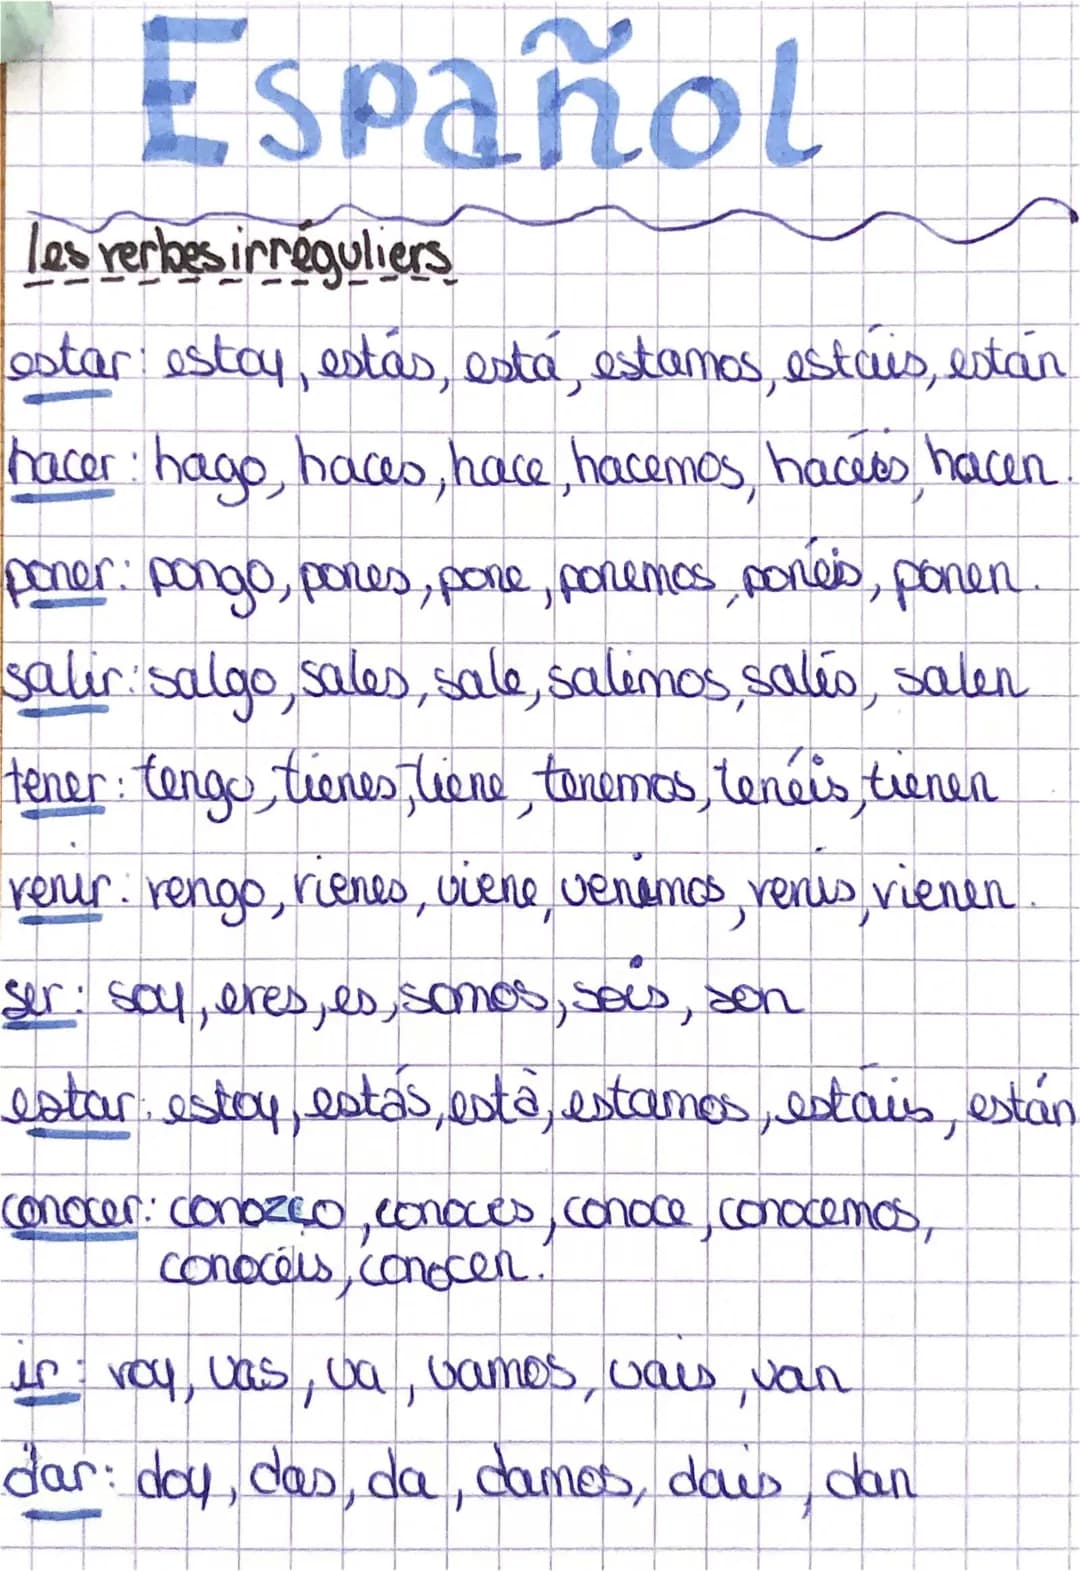 Español
les verbes irréguliers
estar: estoy, estás, está, estamos, estáis, están
hacer: hago, haces, hace, hacemos, hacéis, hacen.
poner: pongo, pones, pone, ponemos, ponéis, ponen.
salir: salgo, sales, sale, salimos, salís, salen
tener: tengo, tienes, tiene, tenemos, tenéis, tienen
venir: vengo, vienes, viene, venimos, venís, vienen.
ser: soy, eres, es, somos, sois, son
estar: estoy, estás, está, estamos, estáis, están
conocer: conozco, conoces, conoce, conocemos,
conocéis, conocen.
ir: voy, vas, va, vamos, vais, van
dar: doy, das, da, damos, dais, dan